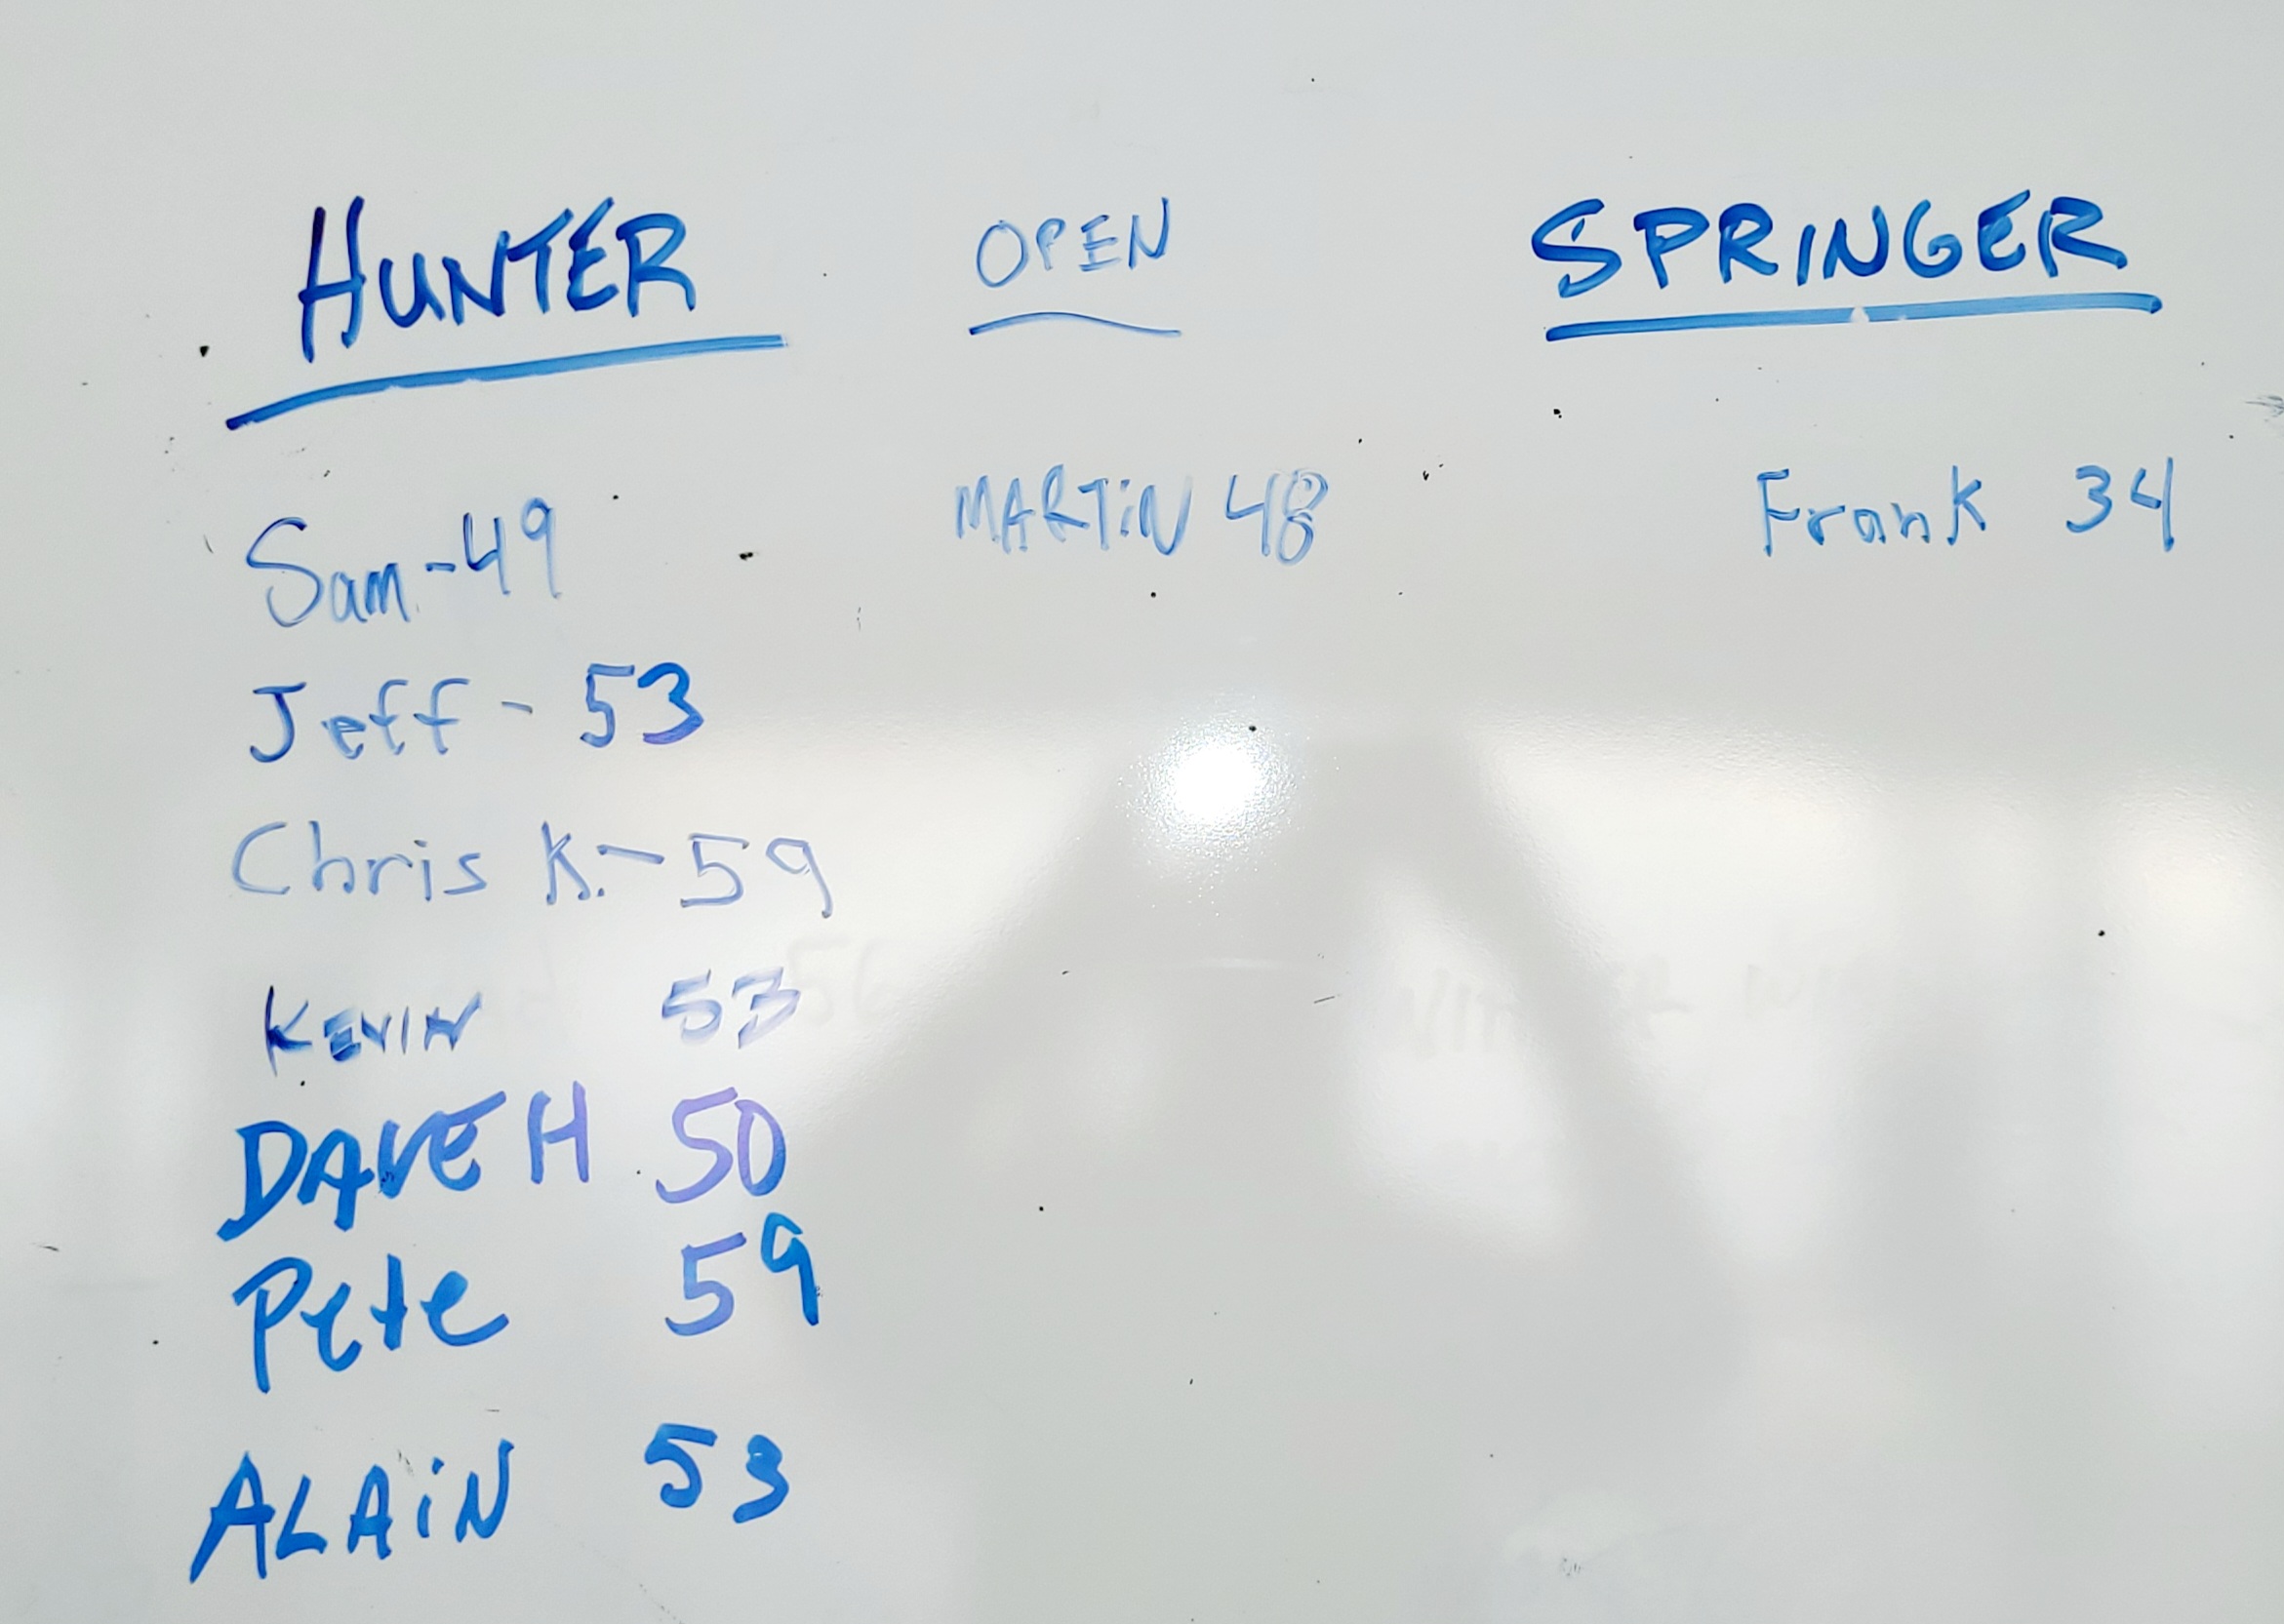 HUNTER
Sam - 49
Jeff - 53
Chris K. - 59
KEVIN 53
DAVE H 50
Pete 59
ALAiN 53
OPEN
MARTiN 48
SPRINGER
Frank 34